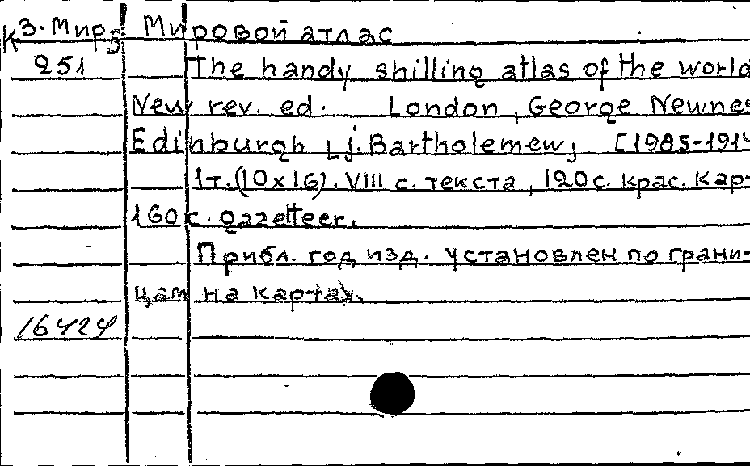 К 3. Мир 5 Мировой атлас
251 The handy shilling atlas of the world
New rev. ed. London, George Newnes
Edinburgh [j. Bartholemew] [1985-191
1т. (10x16). VIII с. текста, 120с. крас. кар-
160 с. gazetteer.
Прибл. год изд. установлен по грани-
цам на картах.
16424